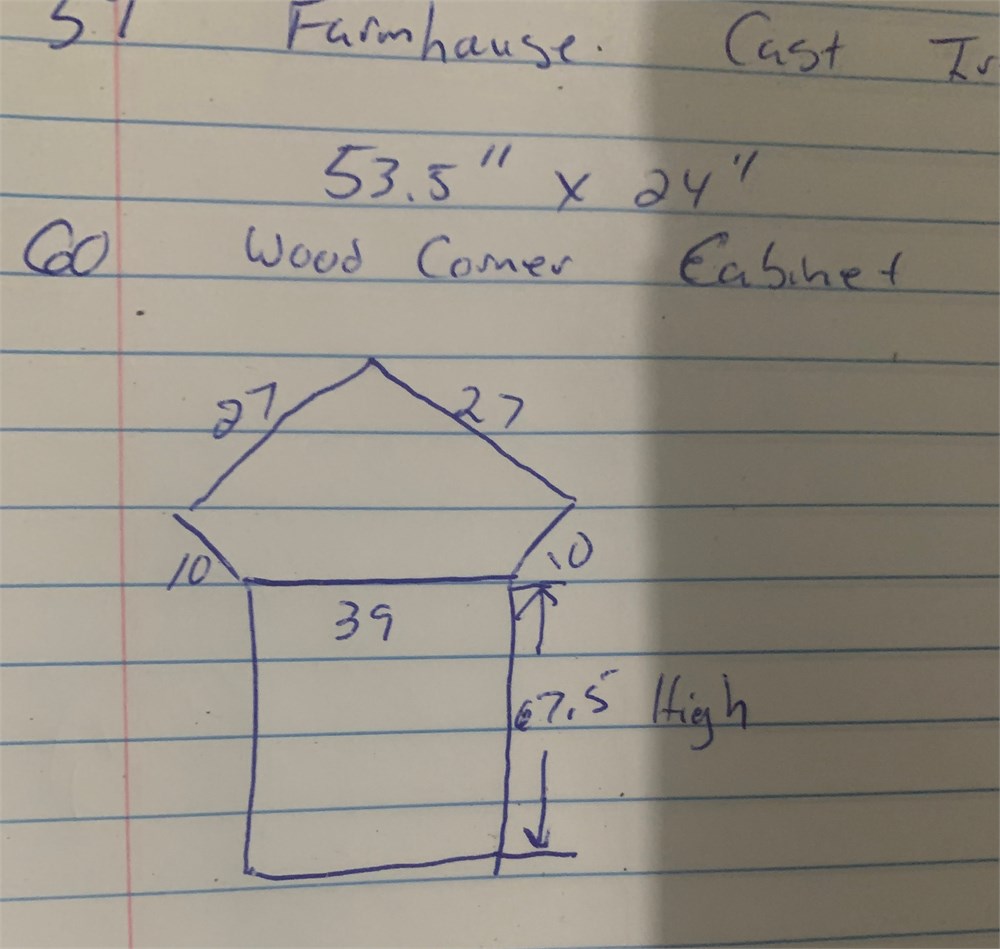 Farmhause. Cast
53.5" x 24"
60 Wood Corner Cabinet
27 27
10 10
39
67.5 High